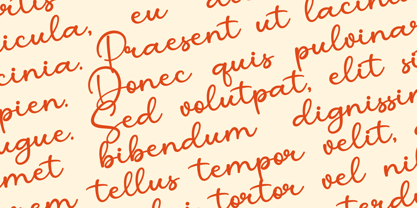 eu
icula, Praesent ut lacin
cinia. Donec quis pulvinar
pien. Sed volutpat, elit si
ugue. bibendum dignissim
met tellus tempor velit,
tortor vel